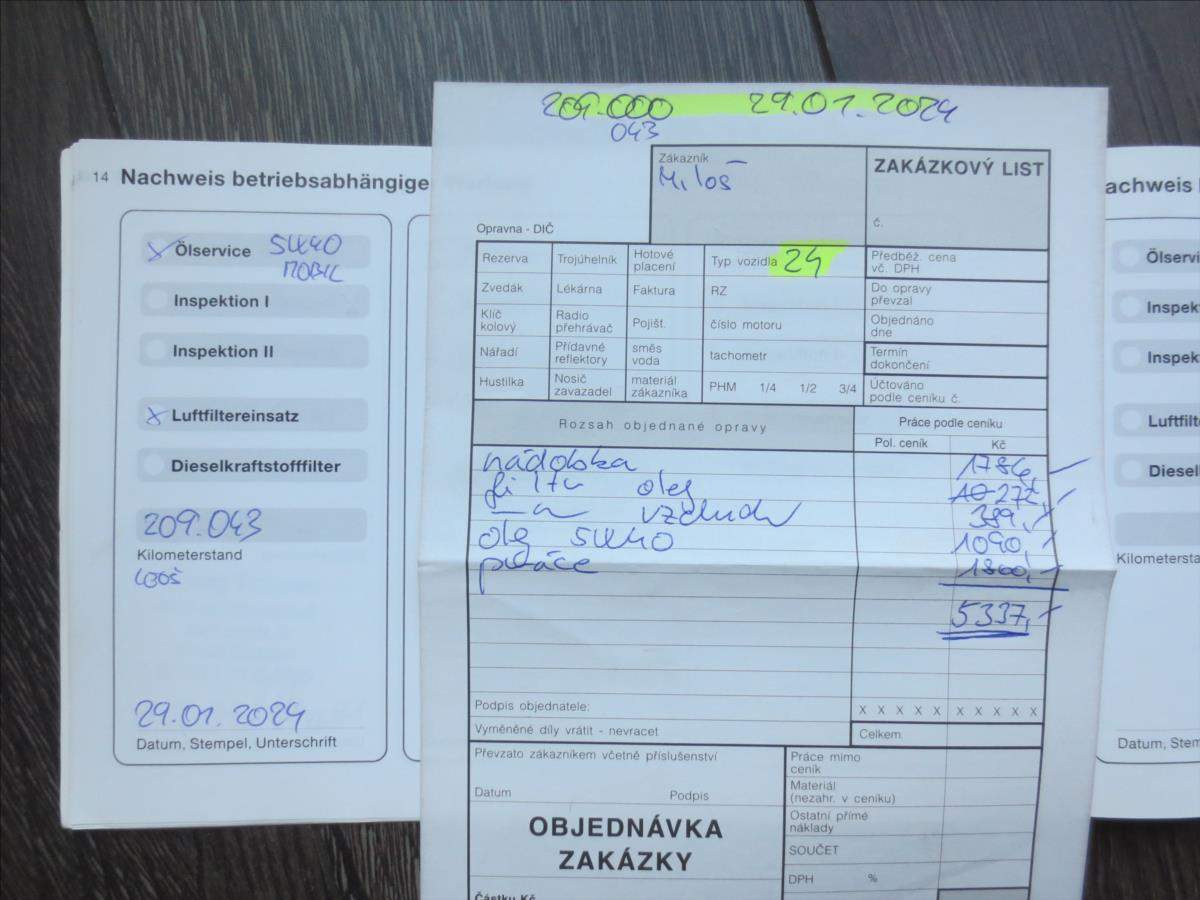 209.000 29.01.2024
043
14 Nachweis betriebsabhängige
Ölservice 5W40
MOBIL
Inspektion I
Inspektion II
Luftfiltereinsatz
Dieselkraftstofffilter
209.043
Kilometerstand
29.01.2024
Datum, Stempel, Unterschrift
Zákazník
Miloš
ZAKÁZKOVÝ LIST
č.
Opravna - DIČ
Rezerva Trojúhelník Hotové placení Typ vozidla Z4 Předběž. cena vč. DPH
Zvedák Lékárna Faktura RZ Do opravy převzal
Klíč kolový Radio přehrávač Pojišt. číslo motoru Objednáno dne
Nářadí Přídavné reflektory směs voda tachometr Termín dokončení
Hustilka Nosič zavazadel materiál zákazníka PHM 1/4 1/2 3/4 Účtováno podle ceníku č.
Rozsah objednané opravy Práce podle ceníku
Pol. ceník Kč
nádobka 1786,-
filtr olej 272,-
—"— vzduch 389,-
olej 5W40 1090,-
práce 1800,-
5337,-
Podpis objednatele: X X X X X X X X X X
Vyměněné díly vrátit - nevracet Celkem
Převzato zákazníkem včetně příslušenství
Datum Podpis
OBJEDNÁVKA
ZAKÁZKY
Částku Kč
Práce mimo ceník
Materiál
(nezahr. v ceníku)
Ostatní přímé náklady
SOUČET
DPH %
achweis
Ölservi
Inspek
Inspek
Luftfil
Diesel
Kilometersta
Datum, Stem